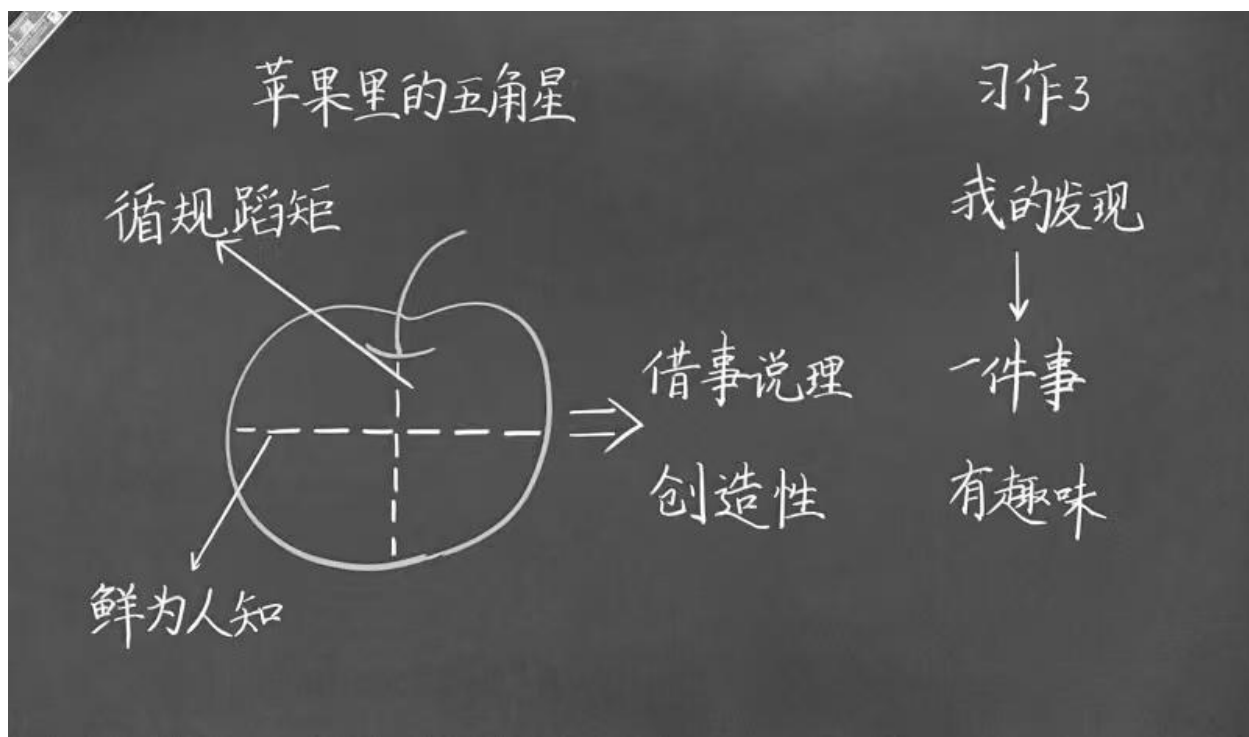 苹果里的五角星
循规蹈矩
鲜为人知
借事说理
创造性
习作3
我的发现
一件事
有趣味